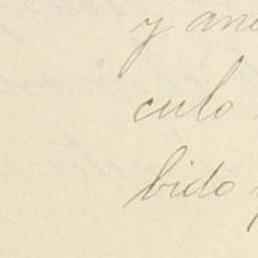 y an
culo
bido